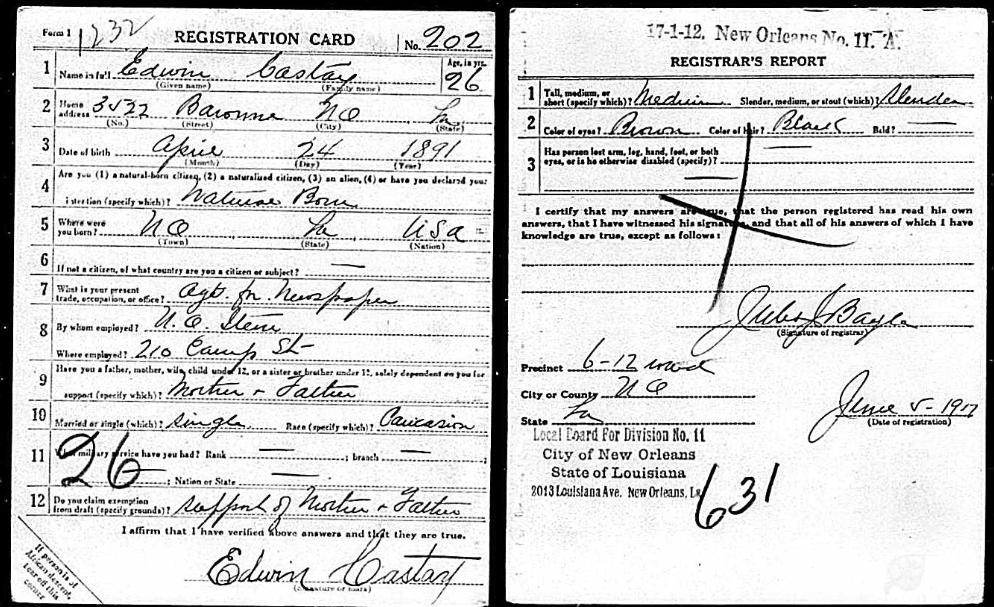 Form 1 1232 REGISTRATION CARD No. 202
1 Name in full Edwin Castay Age, in yrs. 26
(Given name) (Family name)
2 Home address 3522 Baronne N O La
(No.) (Street) (City) (State)
3 Date of birth April 24 1891
(Month) (Day) (Year)
4 Are you (1) a natural-born citizen, (2) a naturalized citizen, (3) an alien, (4) or have you declared your
intention (specify which)? Natural Born
5 Where were you born? N O La USa
(Town) (State) (Nation)
6 If not a citizen, of what country are you a citizen or subject? —
7 What is your present trade, occupation, or office? Agt. for Newspaper
8 By whom employed? N. O. Item
Where employed? 210 Camp St
9 Have you a father, mother, wife, child under 12, or a sister or brother under 12, solely dependent on you for
support (specify which)? Mother + Father
10 Married or single (which)? Single Race (specify which)? Caucasion
11 What military service have you had? Rank — ; branch — ;
26
— ; Nation or State —
12 Do you claim exemption from draft (specify grounds)? support of Mother + Father
I affirm that I have verified above answers and that they are true.
Edwin Castay
If person is of African descent, tear off this corner
17-1-12. New Orleans No. 11. A.
REGISTRAR'S REPORT
1 Tall, medium, or short (specify which)? Medium Slender, medium, or stout (which)? Slender
2 Color of eyes? Brown Color of hair? Black Bald? —
3 Has person lost arm, leg, hand, foot, or both
eyes, or is he otherwise disabled (specify)? —
I certify that my answers are true, that the person registered has read his own
answers, that I have witnessed his signature, and that all of his answers of which I have
knowledge are true, except as follows:
Jules J
(Signature of registrar)
Precinct 6-12 ward
City or County N O
State La
June 5-1917
(Date of registration)
Local Board For Division No. 11
City of New Orleans
State of Louisiana
2013 Louisiana Ave. New Orleans, La
631